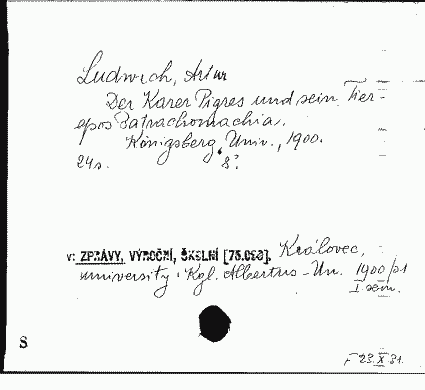 Ludwich, Artur
Der Karer Pigres und sein Tier-
epos Batrachomachia.
Königsberg, Univ., 1900.
24s. 8°.
v: ZPRÁVY, VÝROČNÍ, ŠKOLNÍ [75.093], Královec,
university: Kgl. Albertus-Un. 1900/01
I. sem.
S
F 23.X.31.